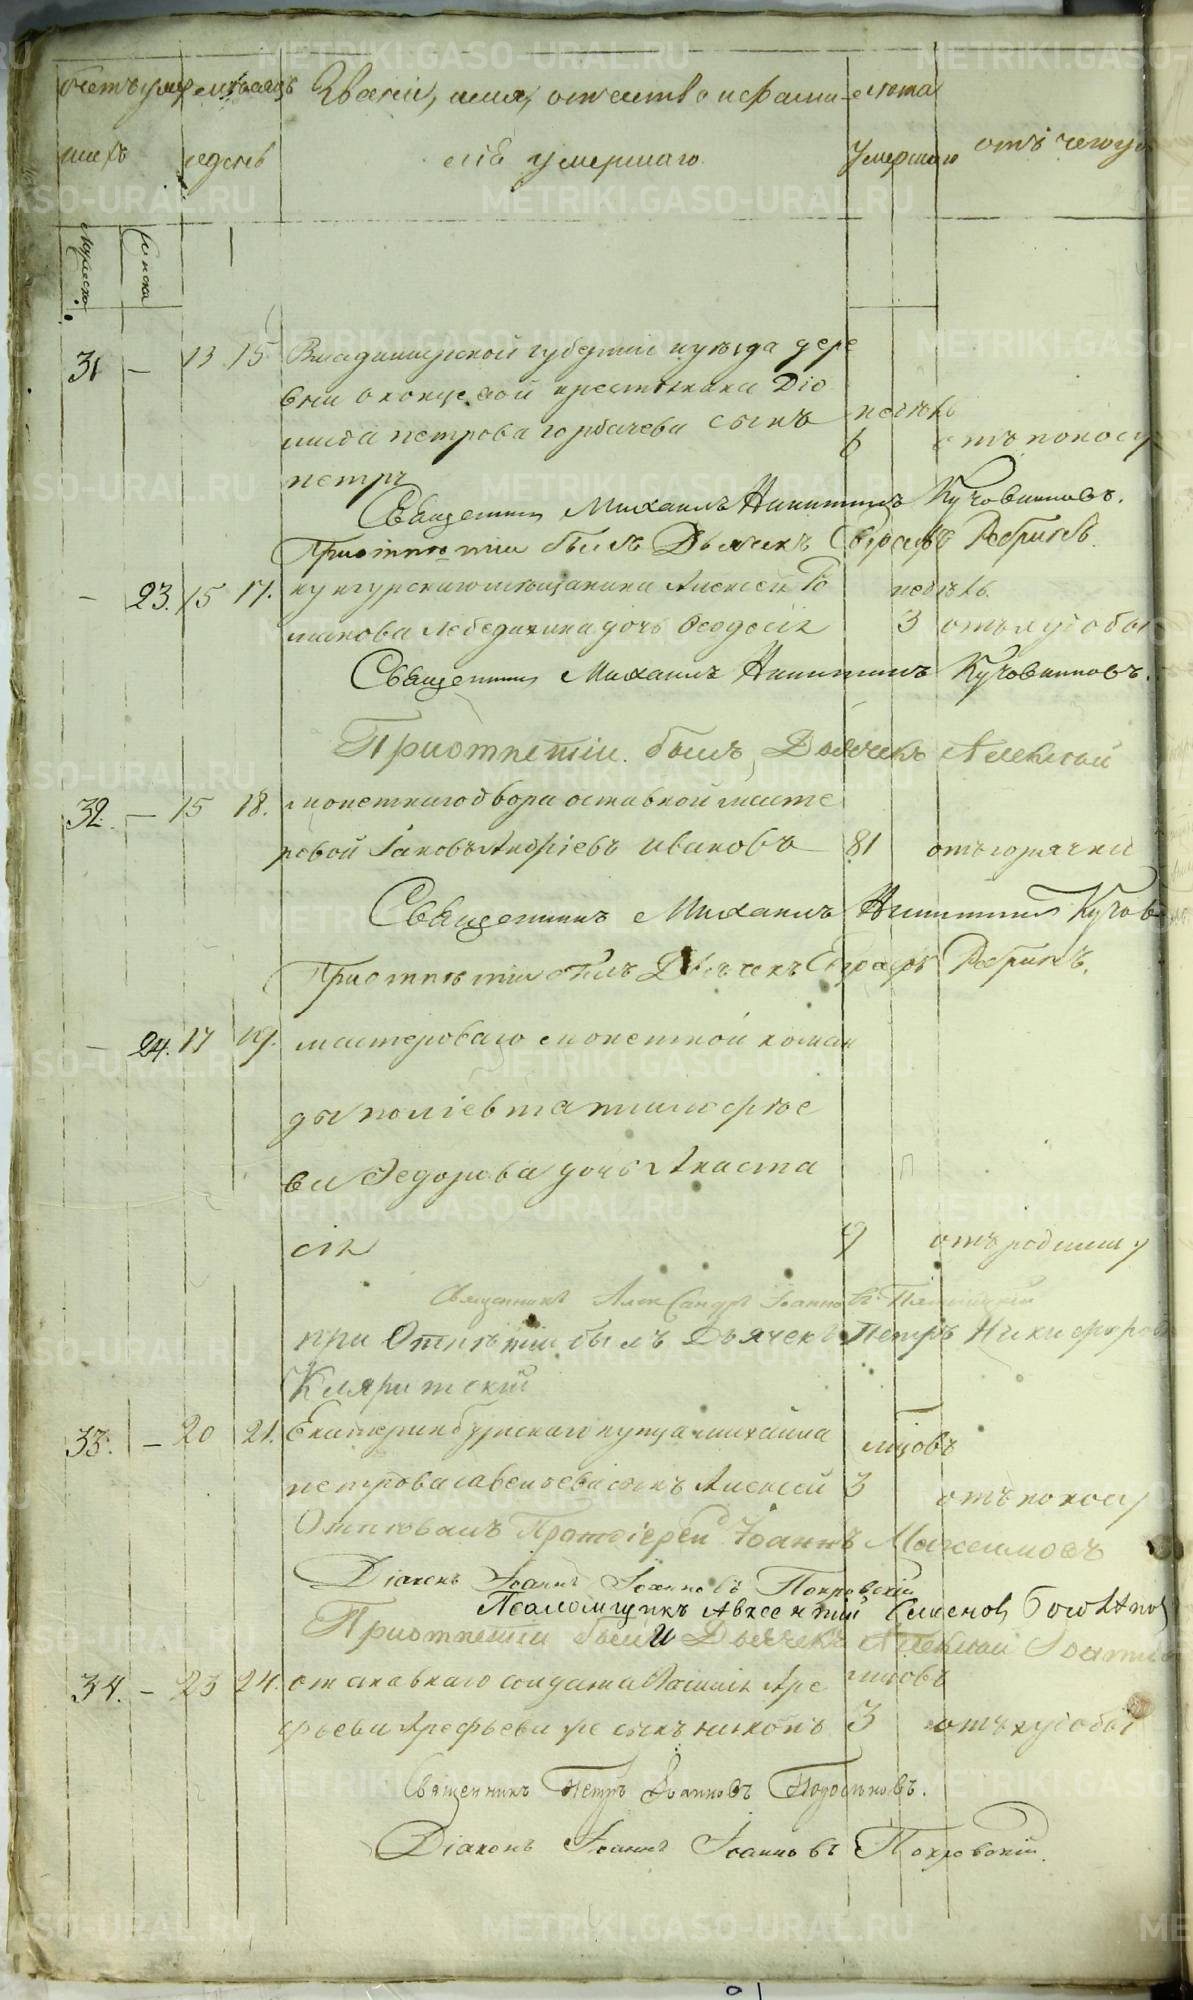 счетъ умер мѣсяцъ Званіе, имя, отечество и фами лѣта
шихъ и день ліѣ умершаго. Умершаго отъ чего у
Мужеска Женска
31 — 13 15 Владимирской губерніи и уѣзда дере
вни крестьянина Діо
мида петрова горбачева сынъ недѣль
6 отъ поносу
петръ
Священникъ Михаилъ Никитинъ Кучовниковъ.
При отпѣтіи былъ Дьячекъ Евграфъ Ребринъ.
— 23. 15 17. кунгурскаго мѣщанина Алексея Ро недѣль
манова Лебедихина дочь Феодосія 3 отъ худобы
Священникъ Михаилъ Никитинъ Кучовниковъ.
При отпетіи былъ Дьячекъ Алексѣй
32. — 15 18. монетнаго двора отставной масте
ровой Іаковъ Андріевъ Ивановъ 81 отъ горячки
Священникъ Михаилъ Никитинъ Кучов
При отпѣтіи былъ Дьячекъ Евграфъ Ребринъ.
— 24. 17 19. мастероваго монетной коман
ды
ва Федорова дочь Анаста
сія 9 отъ родимцу
Священникъ Александръ Іоанновъ
при Отпѣтіи былъ Дьячекъ Петръ Никифоровъ
33. — 20 21. Екатеринбургскаго купца михаила мцовъ
петрова савельева сынъ Алексей 3 отъ поносу
Отпѣвалъ Протоіерей Іоаннъ Максимовъ
Діаконъ Іоаннъ Іоанновъ Покровскій
Псаломщикъ Авксентій Семеновъ
При отпетіи были Дьячекъ Алексѣй Іоанновъ
34. — 23 24. отставнаго солдата Василья Аре мцовъ
фьева Арефьева же сынъ никонъ 3 отъ худобы
Священникъ Петръ Іоанновъ
Діаконъ Іоаннъ Іоанновъ Покровскій.
METRIKI.GASO-URAL.RU